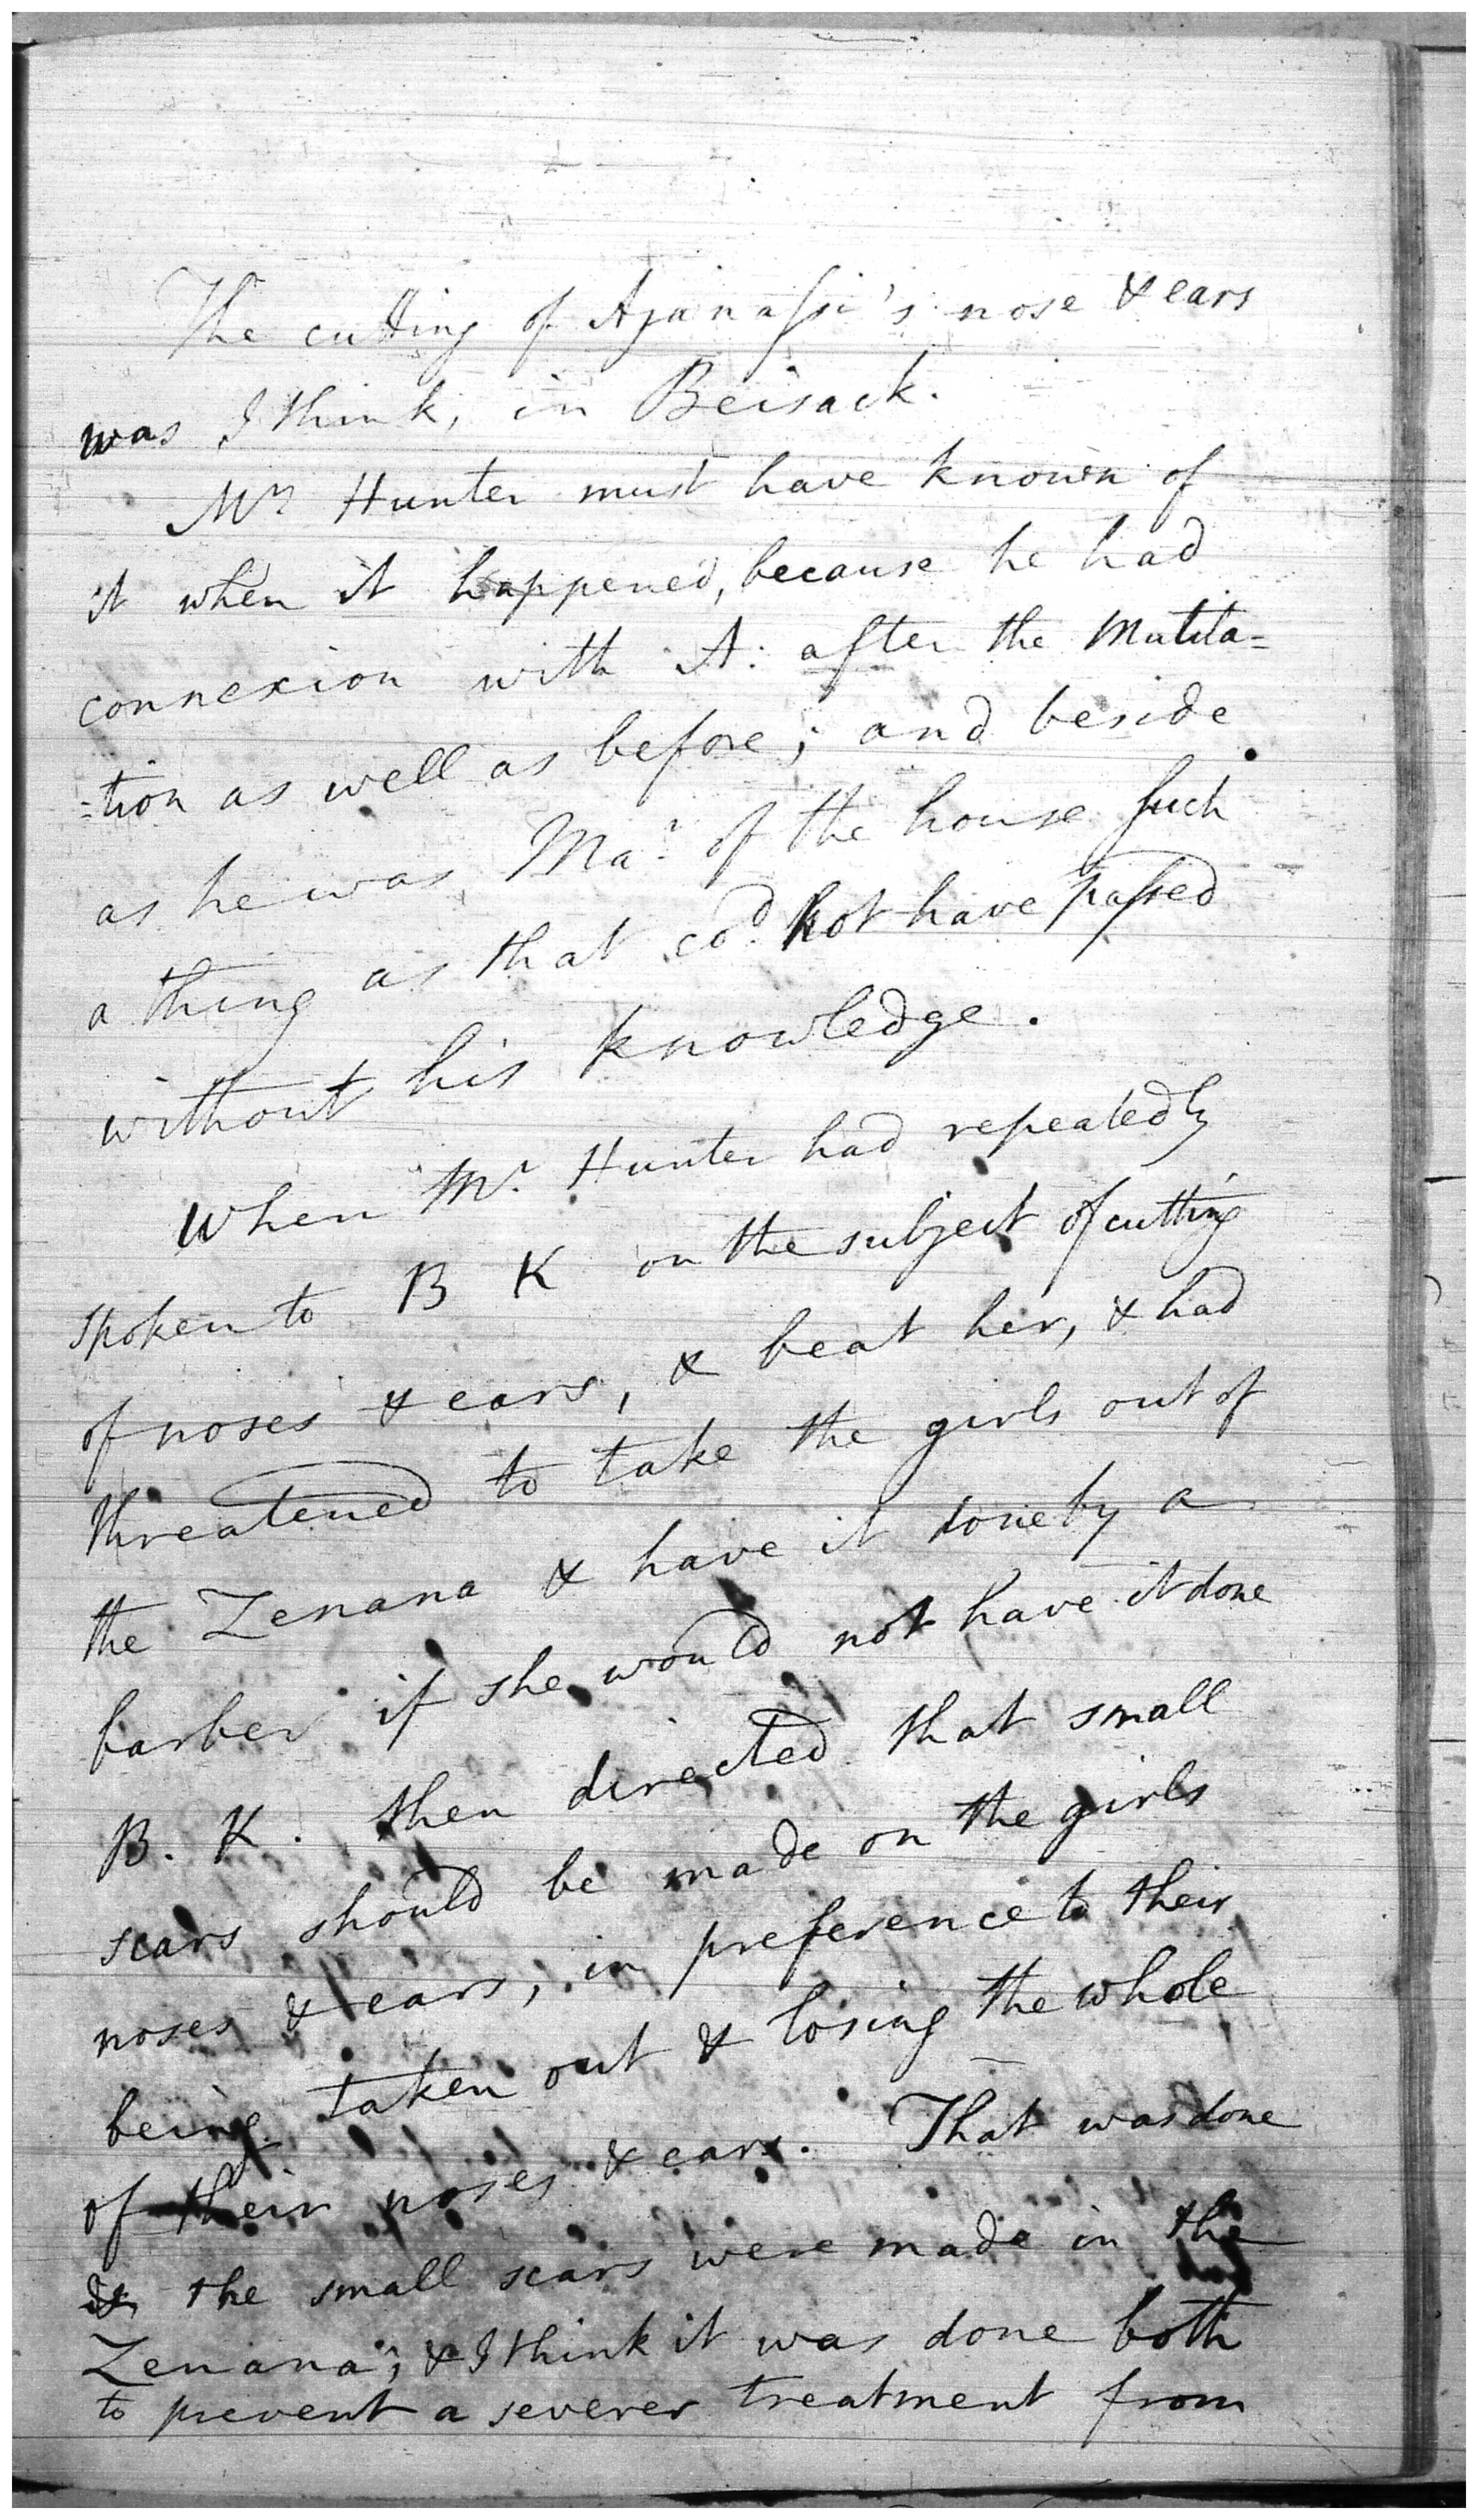 The cutting of Ajanassi's nose & ears
was I think, in Beisack.
Mr Hunter must have known of
it when it happened, because he had
connexion with A: after the Mutila=
=tion as well as before; and beside
as he was Mar. of the house such
a thing as that cod. not have passed
without his knowledge.
When Mr. Hunter had repeatedly
spoken to B K on the subject of cutting
of noses & ears, & beat her, & had
threatened to take the girls out of
the Zenana & have it done by a
barber if she would not have it done
B. K. then directed that small
scars should be made on the girls
noses & ears, in preference to their
being taken out & losing the whole
of their noses & ears. That was done
& the small scars were made in the
Zenana; & I think it was done both
to prevent a severer treatment from